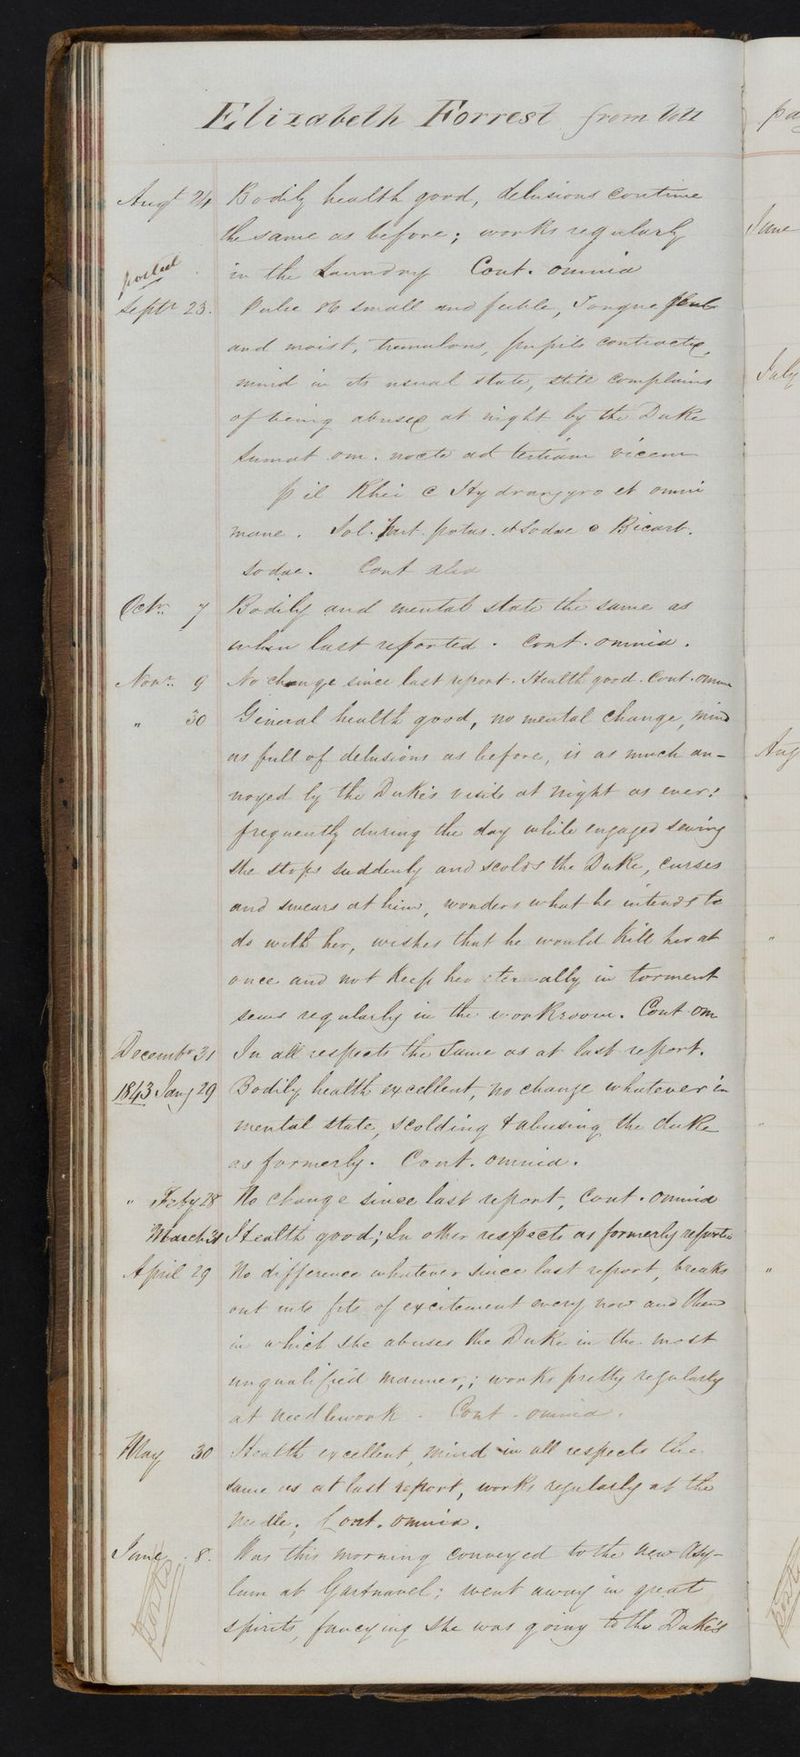 Elizabeth Forrest from Vol
Augt 24 Bodily health good, delusions continue
the same as before; works regularly
posted in the Laundry Cont. omnia
Septr 23. Pulse 86 small and feeble, Tongue
and moist, tremulous, pupils contracted,
mind in its usual state, still complains
of being abused at night by the Duke
Sumat om. nocte ad tertiam vicem
pil Rhei c Hydrargyro et omni
mane. Sol. Tart. potas. et Sodae c Bicarb.
Sodae. Cont alia
Octr. 7 Bodily and mental state the same as
when last reported. Cont. omnia.
Novr. 9 No change since last report. Health good. Cont. omnia
" 30 General health good, no mental change, mind
as full of delusions as before, is as much an-
noyed by the Duke's visits at night as ever:
frequently during the day while engaged sewing
she stops suddenly and scolds the Duke, curses
and swears at him, wonders what he intends to
do with her, wishes that he would kill her at
once and not keep her eternally in torment
sews regularly in the workroom. Cont. om
Decembr 31 In all respects the same as at last report.
1843 Jany 29 Bodily health excellent, no change whatever in
mental state, scolding & abusing the duke
as formerly. Cont. omnia.
" Feby 28 No change since last report, Cont. omnia
March 31 Health good; In other respects as formerly reported
April 29 No difference whatever since last report, breaks
out into fits of excitement every now and then
in which she abuses the Duke in the most
unqualified manner,; works pretty regularly
at needlework. Cont. omnia.
May 30 Health excellent, mind in all respects the
same as at last report, works regularly at the
needle. Cont. omnia.
June 8. Was this morning conveyed to the new Asy-
lum at Gartnavel; went away in great
spirits, fancying she was going to the Duke's
June
July
Aug
"
"
"